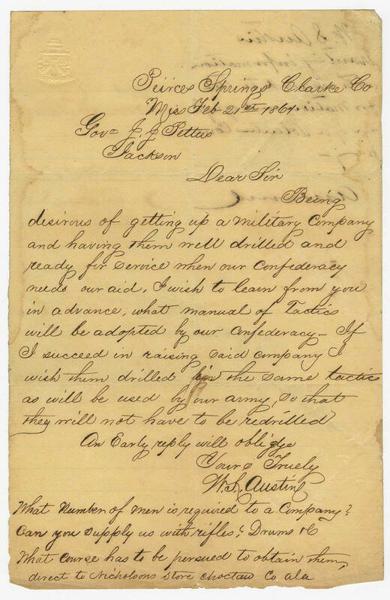 Peirces Springs Clarke Co
Mis Feb 21st 1861.
Gov= J. J. Pettus
Jackson
Dear Sir
Being
desirous of getting up a military Company
and having them well drilled and
ready for service when our Confederacy
needs our aid, I wish to learn from you
in advance, what manual of Tactics
will be adopted by our Confederacy – If
I succeed in raising said company I
wish them drilled in the same tactics
as will be used by our army, so that
they will not have to be redrilled
An Early reply will oblidge
Yours Truely
W. S. Austin
What Number of men is required to a Company?
Can you supply us with rifles, & Drums &C
What course has to be persued to obtain them,
direct to Nicholsons Store Choctaw Co Ala